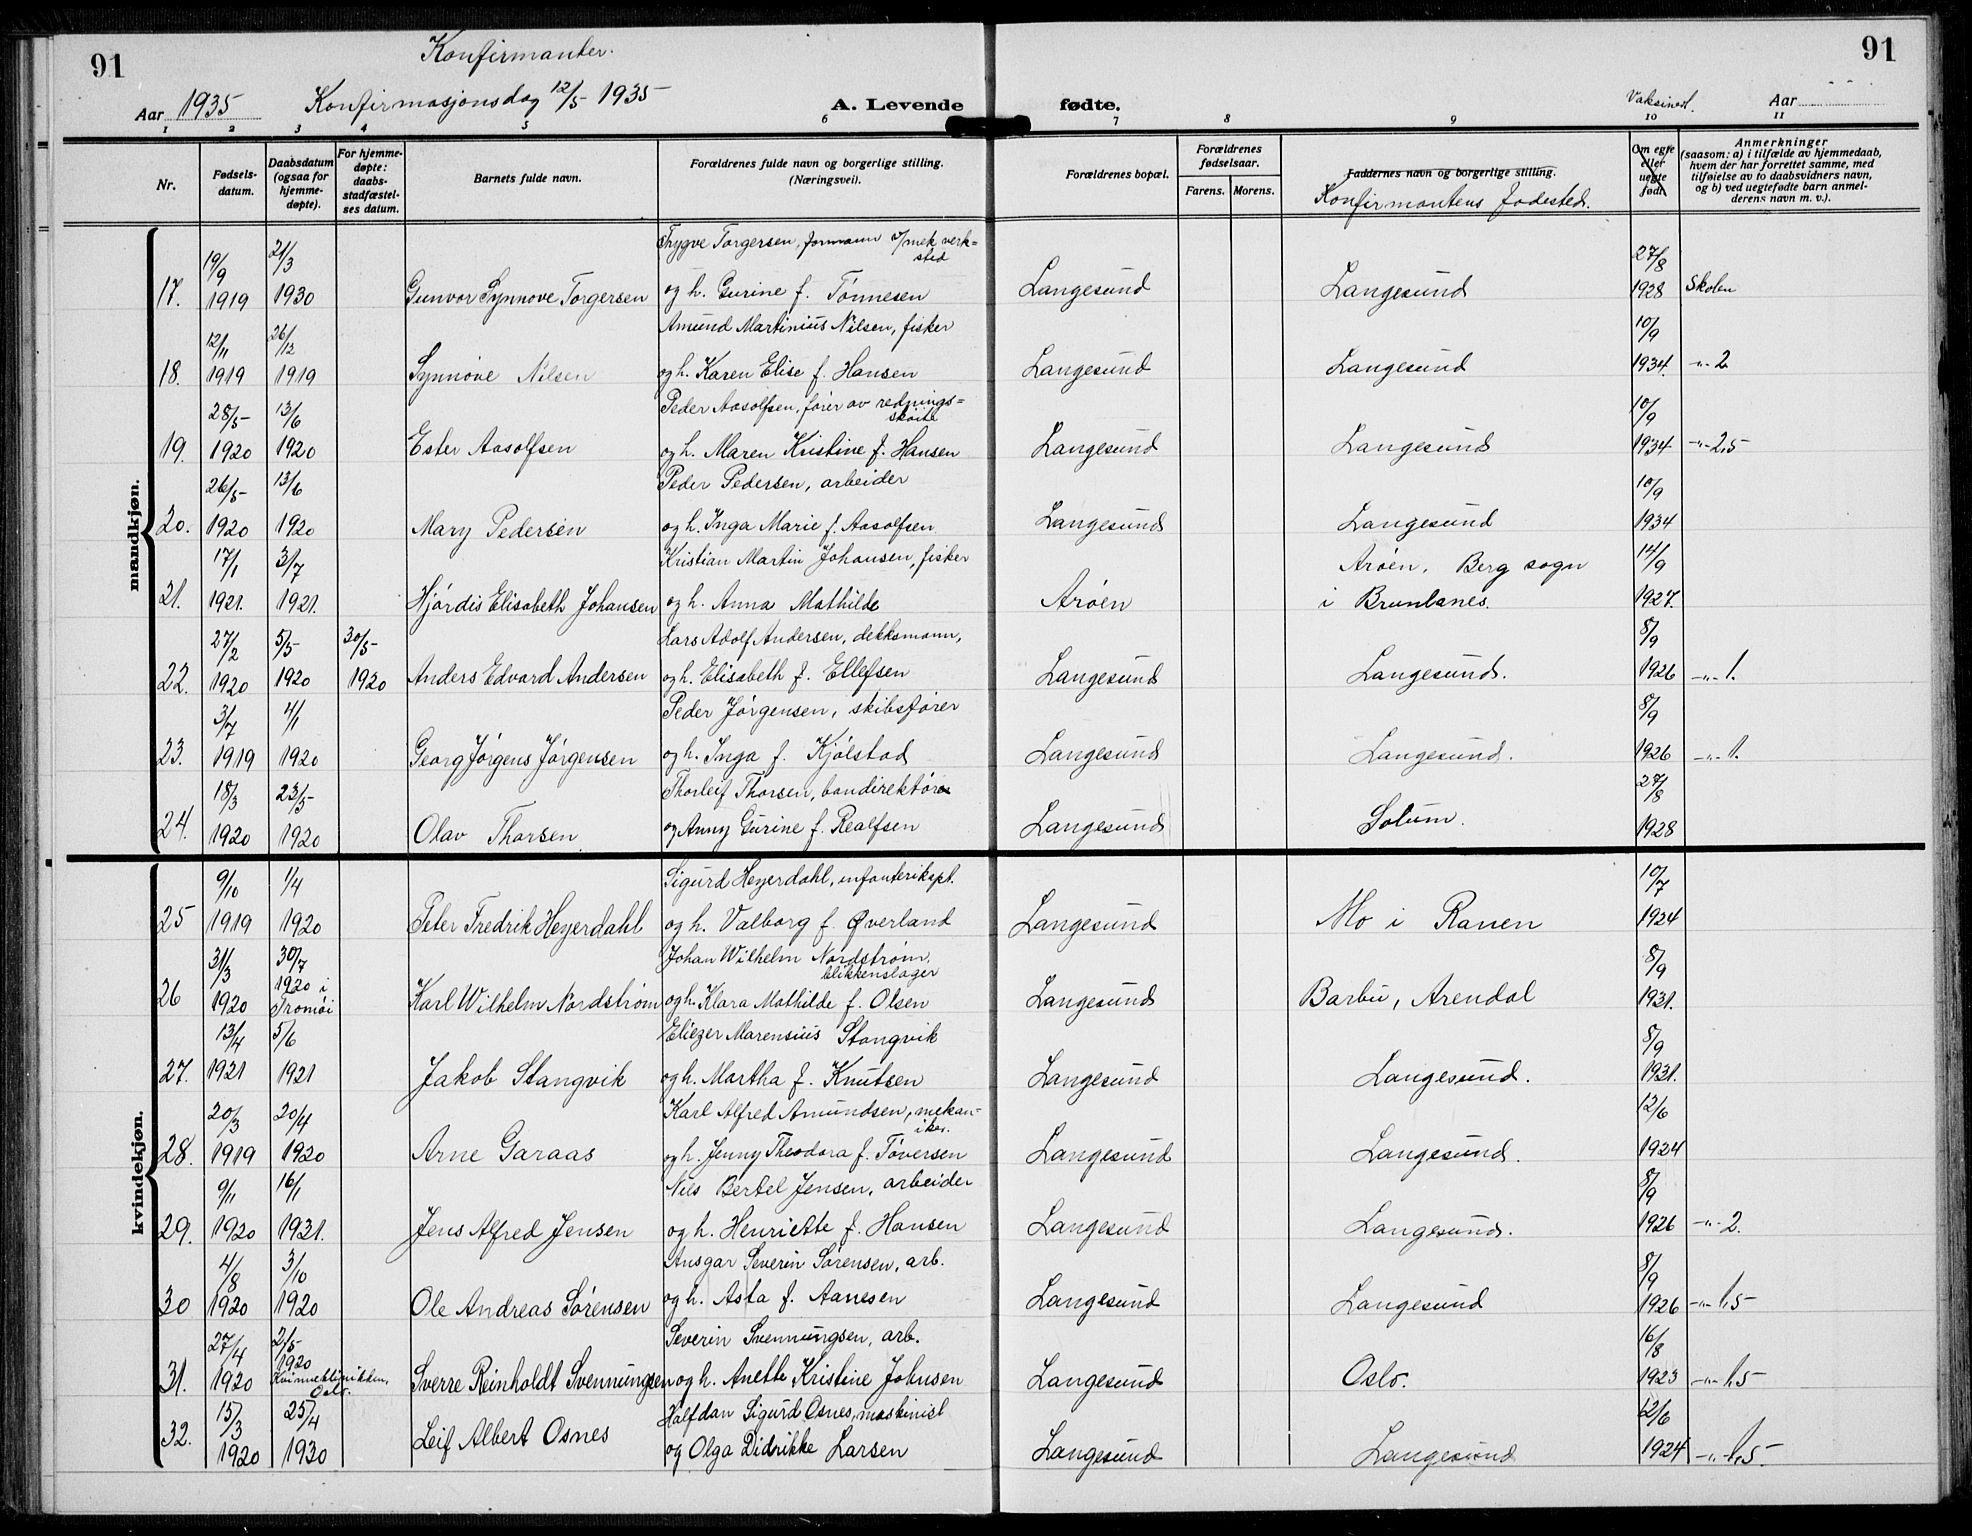 91
Konfirmanter.
91
Aar 1935
Konfirmasjonsdag 12/5 1935
A. Levende fødte.
Vaksined.
Aar
1 2 3 4 5 6 7 8 9 10 11
Nr.
Fødsels-datum.
Daabsdatum (ogsaa for hjemme-døpte).
For hjemme-døpte: daabs-stadfæstel-ses datum.
Barnets fulde navn.
Forældrenes fulde navn og borgerlige stilling. (Næringsvei).
Forældrenes bopæl.
Forældrenes fødselsaar.
Farens. Morens.
Faddernes navn og borgerlige stilling.
Konfirmantens fødested.
Om egte eller uegte født.
Anmerkninger (saasom: a) i tilfælde av hjemmedaab, hvem der har forrettet samme, med tilføielse av to daabsvidners navn, og b) ved uegtefødte barn anmel-derens navn m. v.).
mandkjøn.
19/9 21/3 Trygve Torgersen, formann v/mek verk=sted 27/8
17. 1919 1930 Gunvor Synnove Torgersen og h. Gurine f. Tönnesen Langesund Langesund 1928 Skolen
12/11 26/12 Amund Martinius Nilsen, fisker 10/9
18. 1919 1919 Synnöve Nilsen og h. Karen Elise f. Hansen Langesund Langesund 1934. -"- 2
28/5 13/6 Peder Aasolfsen, förer av rednings=sköite 10/9
19. 1920 1920 Ester Aasolfsen og h. Maren Kristine f. Hansen Langesund Langesund 1934 -"- 2,5
26/5 13/6 Peder Pedersen, arbeider 10/9
20. 1920 1920 Mary Pedersen og h. Inga Marie f. Aasolfsen Langesund Langesund 1934
17/1 3/7 Kristian Martin Johansen, fisker Aröen, Berg sogn 14/9
21. 1921. 1921. Hjördis Elisabeth Johansen og h. Anna Mathilde Aröen i Brunlanes. 1927.
27/2 5/5 30/5 Lars Adolf Andersen, dekksmann, 8/9
22. 1920 1920 1920 Anders Edvard Andersen og h. Elisabeth f. Ellefsen Langesund Langesund. 1926 -"- 1.
3/7 4/1 Peder Jørgensen, skibsfører 8/9
23. 1919 1920 Georg Jørgens Jørgensen og h. Inga f. Kjølstad Langesund Langesund. 1926 -"- 1.
18/3 23/5 Thorleif Thorsen, bandirektör 27/8
24. 1920 1920 Olav Thorsen og Anny Gurine f. Realfsen Langesund Solum. 1928
kvindekjøn.
9/10 1/4 Sigurd Heyerdahl, infanterikapt. 10/7
25 1919 1920 Peter Fredrik Heyerdahl og h. Valborg f. Øverland Langesund Mo i Ranen 1924
31/3 30/7 Johan Wilhelm Nordstrøm, blikkenslager 8/9
26 1920 1920 i Tromöi Karl Wilhelm Nordstrøm og h. Klara Mathilde f. Olsen Langesund Barbu, Arendal 1931.
13/4 5/6 Eliezer Marensius Stangvik 8/9
27. 1921 1921 Jakob Stangvik og h. Martha f. Knutsen Langesund Langesund. 1931.
20/3 20/4 Karl Alfred Amundsen, mekan-iker. 12/6
28. 1919 1920 Arne Garaas og h. Jenny Theodora f. Töversen Langesund Langesund. 1924
9/11 16/1 Nils Bertel Jensen, arbeider 8/9
29. 1920 1921. Jens Alfred Jensen og h. Henriette f. Hansen Langesund Langesund. 1926 -"- 2.
4/8 3/10 Ansgar Severin Sørensen, arb. 8/9
30 1920 1920 Ole Andreas Sørensen og h. Asta f. Aanesen Langesund Langesund 1926 -"- 1,5
27/4 2/5 Severin Svennungsen, arb. 16/8
31. 1920 1920 Kvinneklinikken, Oslo. Sverre Reinholdt Svennungsen og h. Anette Kristine Johnsen Langesund Oslo. 1923 -"- 1,5
15/3 25/4 Halfdan Sigurd Osnes, maskinist 12/6
32. 1920 1930 Leif Albert Osnes og Olga Didrikke Larsen Langesund Langesund 1924 -"- 1,5